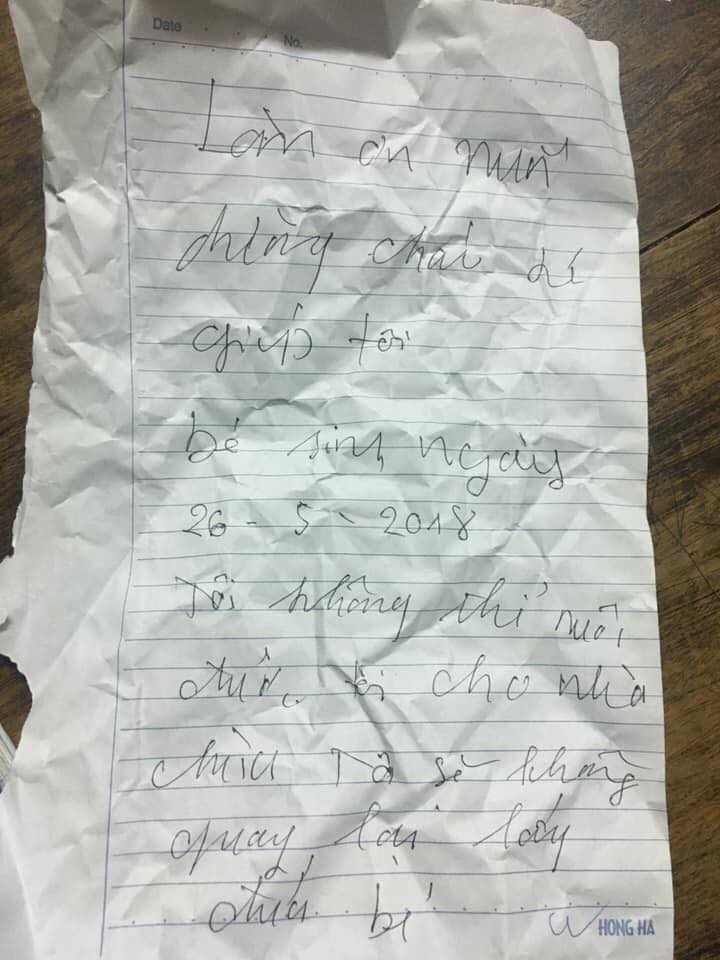 Date
No.
Làm ơn nuô
dưỡng cháu bé
giúp tôi
bé sinh ngày
26 - 5 - 2018
Tôi không thể nuôi
được tôi cho nhà
chùa Tôi sẽ không
quay lại lấy
đứa bé
HONG HA